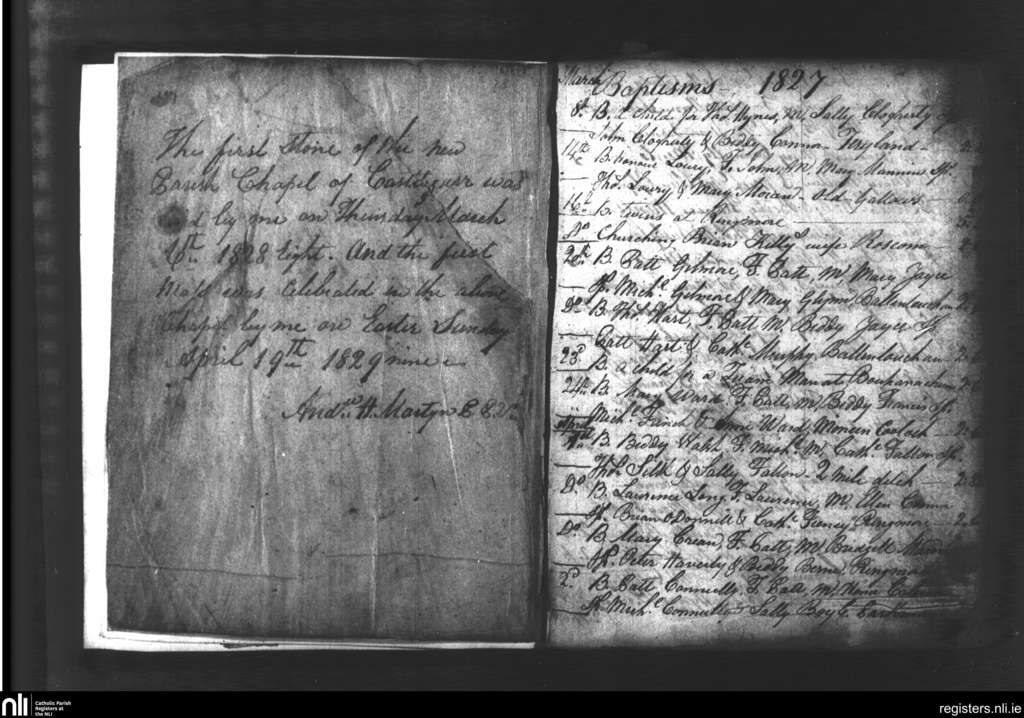 The first Stone of the new
Parish Chapel of Castlegar was
by me on Thursday March
6th 1828 Eight. And the first
Mass was Celebrated in the above
Chapel by me on Easter Sunday
April 19th 1829 nine
Andw. H. Martyn
March Baptisms 1827
8th B. a Child for Thos. Hynes, M, Sally Clogherty
John Clogherty & Biddy Connor
14th B. Honour Lowry, F. John, M. Mary Mannion Sp.
Thos. Lowry & Mary Moran - Old Gallows
16th B. twins at Ringmore
Do. Churching Brian Killy's wife Roscom
20th B. Batt Gilmore, F. Batt, M. Mary Joyce
Sp. Michl. Gilmore & Mary Glynn, Ballenlouchaun
Do. B. Thos. Hart, F. Batt M. Biddy Joyce Sp
Batt Hart & Cath. Murphy Ballenlouchaun
23d B. a child for a Tuam Man at
24th B. Mary Ward F. Batt, M. Biddy Francis Sp.
Michl. French & Ward,
April 1st B. Biddy Walsh F. Michl. M, Cath. Fallon Sp.
Thos. Silk & Sally Fallon - 2 mile ditch
Do. B. Laurence Long, F. Laurence, M. Ellen
Sp. Brian O'Donnell & Cath. Feeney, Ringmore
Do. B. Mary Crean, F. Batt, M. Bridgett
Sp. Peter Haverty & Biddy Berne, Ringmore
2d B. Batt Connelly F. Batt, M.
Sp. Michl. Connelly & Sally Boyle
nli Catholic Parish
Registers at
the NLI
registers.nli.ie